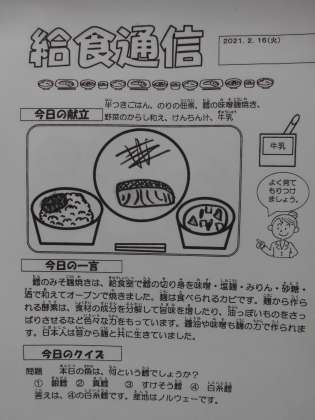 給食通信
2021.2.16(火)
今日の献立
半つきごはん、のりの佃煮、鱈の味噌麹焼き、
野菜のからし和え、けんちん汁、牛乳
牛乳
よく見て
もりつけ
ましょう。
今日の一言
鱈のみそ麹焼きは、給食室で鱈の切り身を味噌・塩麹・みりん・砂糖・
酒で和えてオーブンで焼きました。麹は食べられるカビです。麹から作ら
れる酵素は、食材の成分を分解して旨味を増したり、油っぽいものをさっ
ぱりさせるなど色々な力をもっています。醤油や味噌も麹の力で作れま
す。日本人は昔から麹と共に生きていました。
今日のクイズ
問題 本日の魚は、何という鱈でしょうか?
① 銀鱈 ② 真鱈 ③ すけそう鱈 ④ 白糸鱈
答えは、④の白糸鱈です。産地はノルウェーです。